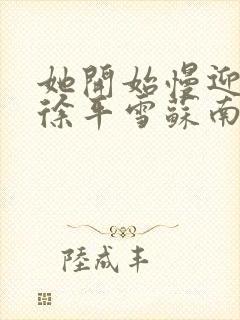 她開始慢迎
徐平雪蘇南
陸成丰